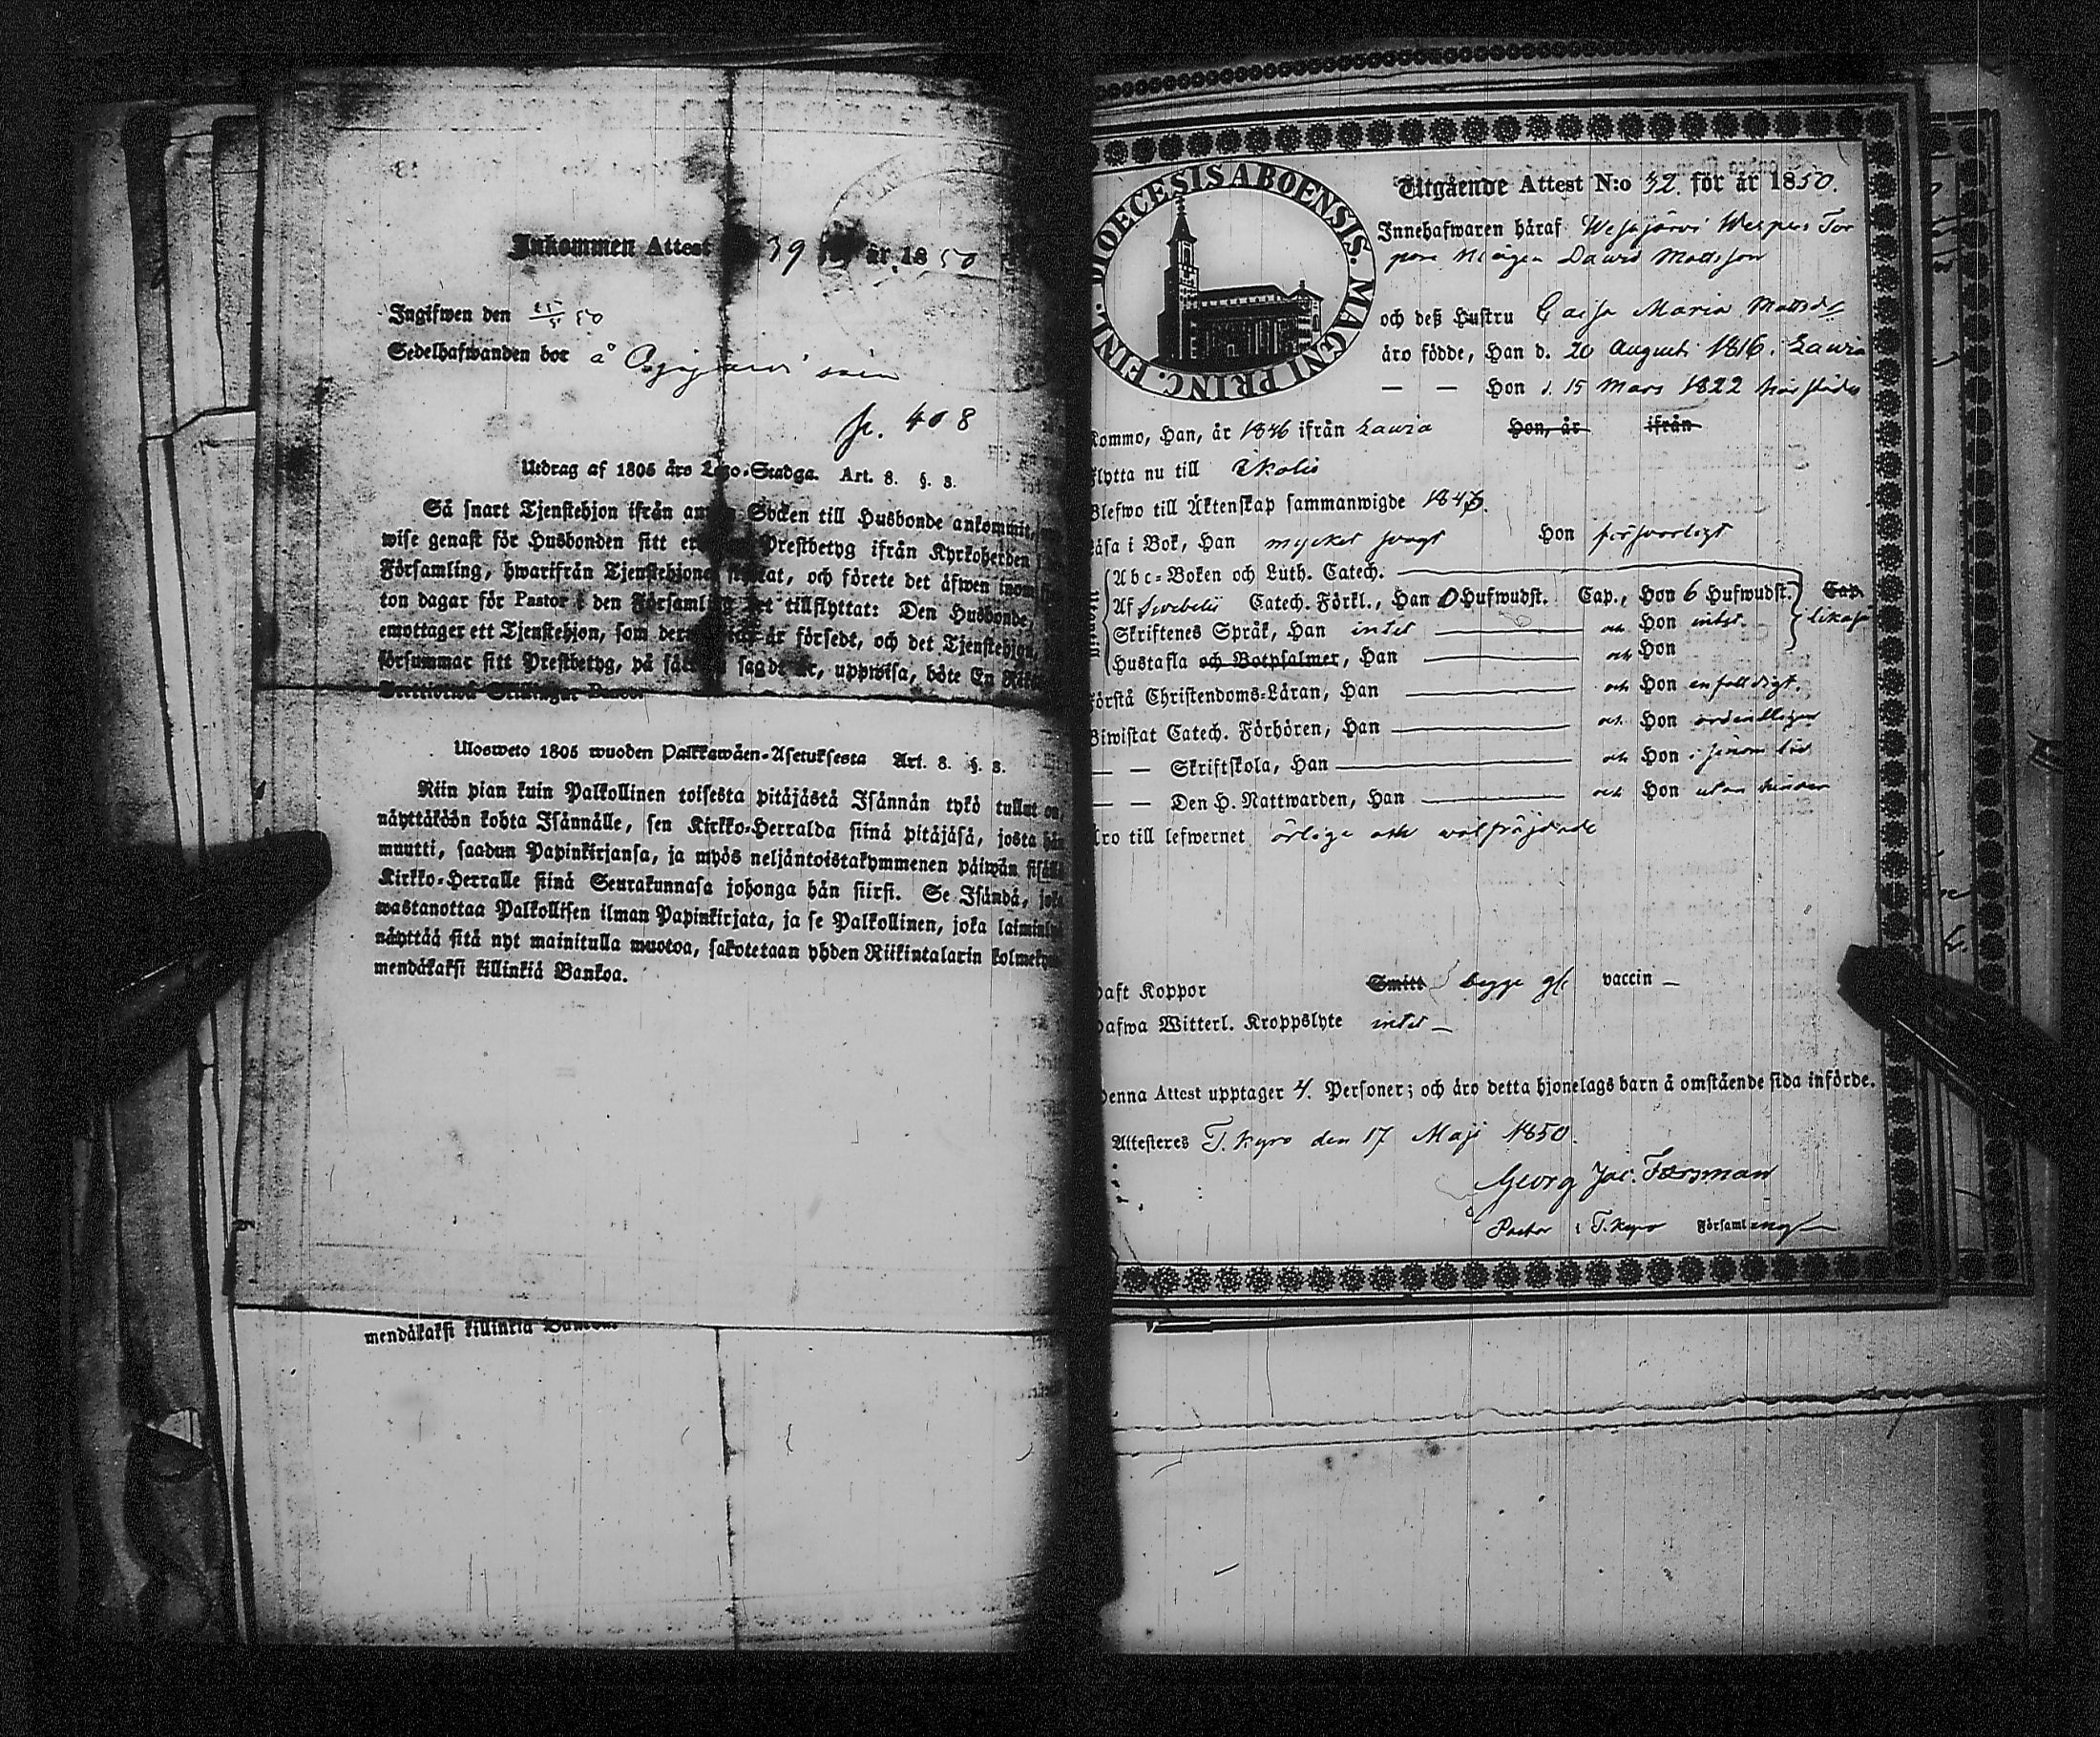 Inkommen Attest 39 för år 1850
Ingifwen den 25/5 50
Sedelhafwanden bor å
p. 408
Utdrag af 1805 års Lego-Stadga. Art. 8. §. 3.
Så snart Tjenstehjon ifrån annan Socken till Husbonde ankommit,
wise genast för Husbonden sitt Prestbetyg ifrån Kyrkoherden
Församling, hwarifrån Tjenstehjonet flyttat, och förete det äfwen inom
ton dagar för Pastor i den Församling det tillflyttat: Den Husbonde,
emottager ett Tjenstehjon, som är försedt, och det Tjenstehjon,
försummar sitt Prestbetyg, på sätt sagdt är, uppwisa, böte En
Ulosweto 1805 wuoden Palkkawäen-Asetuksesta Art. 8. §. 3.
Niin pian kuin Palkollinen toisesta pitäjästä Isännän tykö tullut on,
näyttäköön kohta Isännälle, sen Kirkko-Herralda siinä pitäjäsä, josta hän
muutti, saadun Papinkirjansa, ja myös neljäntoistakymmenen päiwän sisällä
Kirkko-Herralle siinä Seurakunnasa johonga hän siirsi. Se Isändä, joka
wastanottaa Palkollisen ilman Papinkirjata, ja se Palkollinen, joka
näyttää sitä nyt mainitulla muotoa, sakotetaan yhden Riikintalarin
mendäkaksi killinkiä Bankoa.
mendäkaksi killinkiä
DIOECESIS ABOENSIS. MAGNI PRINC. FINL.
Utgående Attest N:o 32. för år 1850.
Innehafwaren häraf Wesajärvi
David Mattsson
och deß Hustru Caisa Maria Mattsdr
äro födde, Han d. 20 Augusti 1816. Lavia
— — Hon d. 15 Mars 1822 härstädes
Kommo, Han, år 1846 ifrån Lavia Hon, år ifrån
flytta nu till Ikalis
Blefwo till Äktenskap sammanwigde
läsa i Bok, Han mycket svagt Hon försvarligt
Abc-Boken och Luth. Catech.
Af Svebelii Catech. Förkl., Han 0 Hufwudst. Cap., Hon 6 Hufwudst. Cap.
Skriftenes Språk, Han intet och Hon intet likaså
Hustafla och Botpsalmer, Han och Hon
Förstå Christendoms-Läran, Han och Hon enfaldigt.
Biwistat Catech. Förhören, Han och Hon ordentligen
— — Skriftskola, Han och Hon i sinom tid
— — Den H. Nattwarden, Han och Hon utan hinder
äro till lefwernet ärlige och välfräjdade
haft Koppor Smitt begge gf. vaccin —
hafwa Witterl. Kroppslyte intet —
Denna Attest upptager 4. Personer; och äro detta hjonelags barn å omstående sida införde.
Attesteres T. Kyro den 17 Maji 1850.
Georg Jac. Forsman
Pastor i T. Kyro Församling